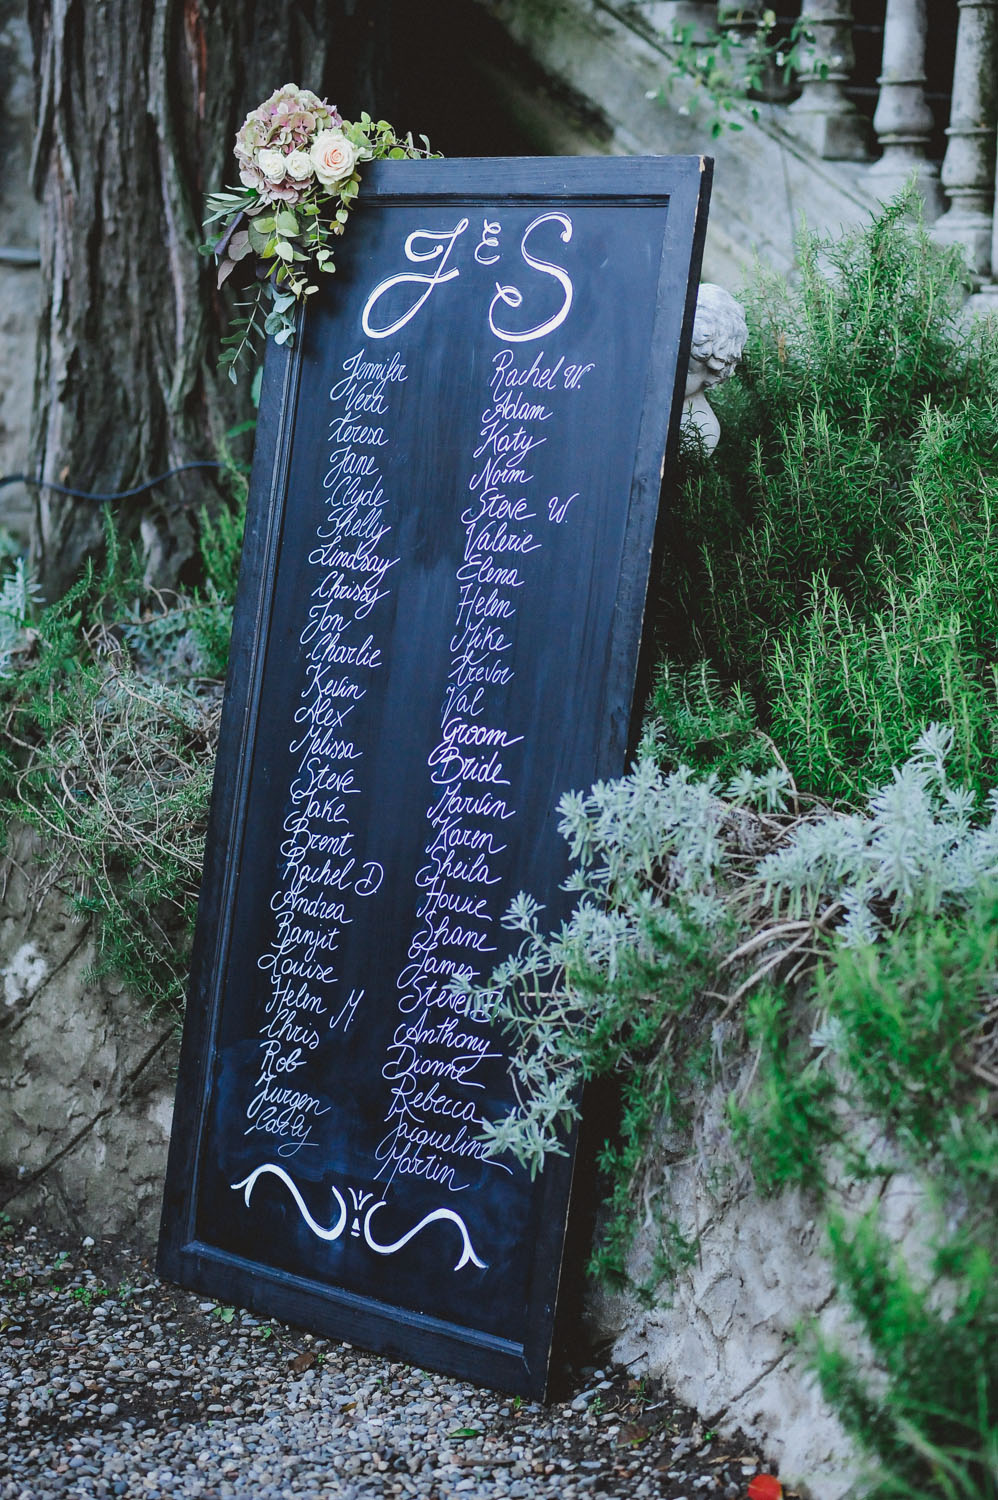 J & S
Jennifer
Vera
Teresa
Jane
Clyde
Shelly
Lindsay
Chrissy
Jon
Charlie
Kevin
Alex
Melissa
Steve
Jake
Brent
Rachel D
Andrea
Ranjit
Louise
Helen M.
Chris
Rob
Jurgen
Carly
Rachel W.
Adam
Katy
Norm
Steve W.
Valerie
Elena
Helen
Mike
Trevor
Val
Groom
Bride
Marvin
Karen
Sheila
Howie
Shane
James
Steve
Anthony
Dionne
Rebecca
Jacqueline
Martin